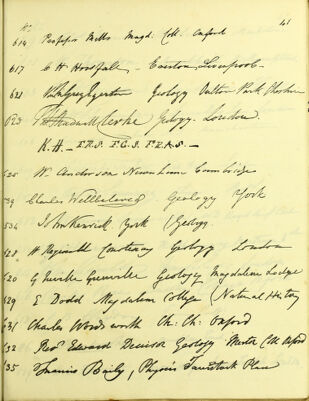 No. 41
614 Professor Mills Magd. Coll. Oxford
617 Horsfall - Everton, Liverpool -
621 Egerton Geology Oulton Park Cheshire
623 Clerke Geology. London.
K.H. - F.R.S. F.G.S. F.R.A.S. -
Wm Anderson Newnham Cambridge
Charles Wellbeloved Geology York
York (Geology.
H Reginald Courtenay Geology London
620 G Neville Grenville Geology Magdalene Lodge
629 E Dodd Magdalene College (Natural History
631 Charles Wordsworth Ch: Ch: Oxford
632 Revd Edward Denison Geology Merton Coll Oxford
635 Francis Baily, Physics Tavistock Place